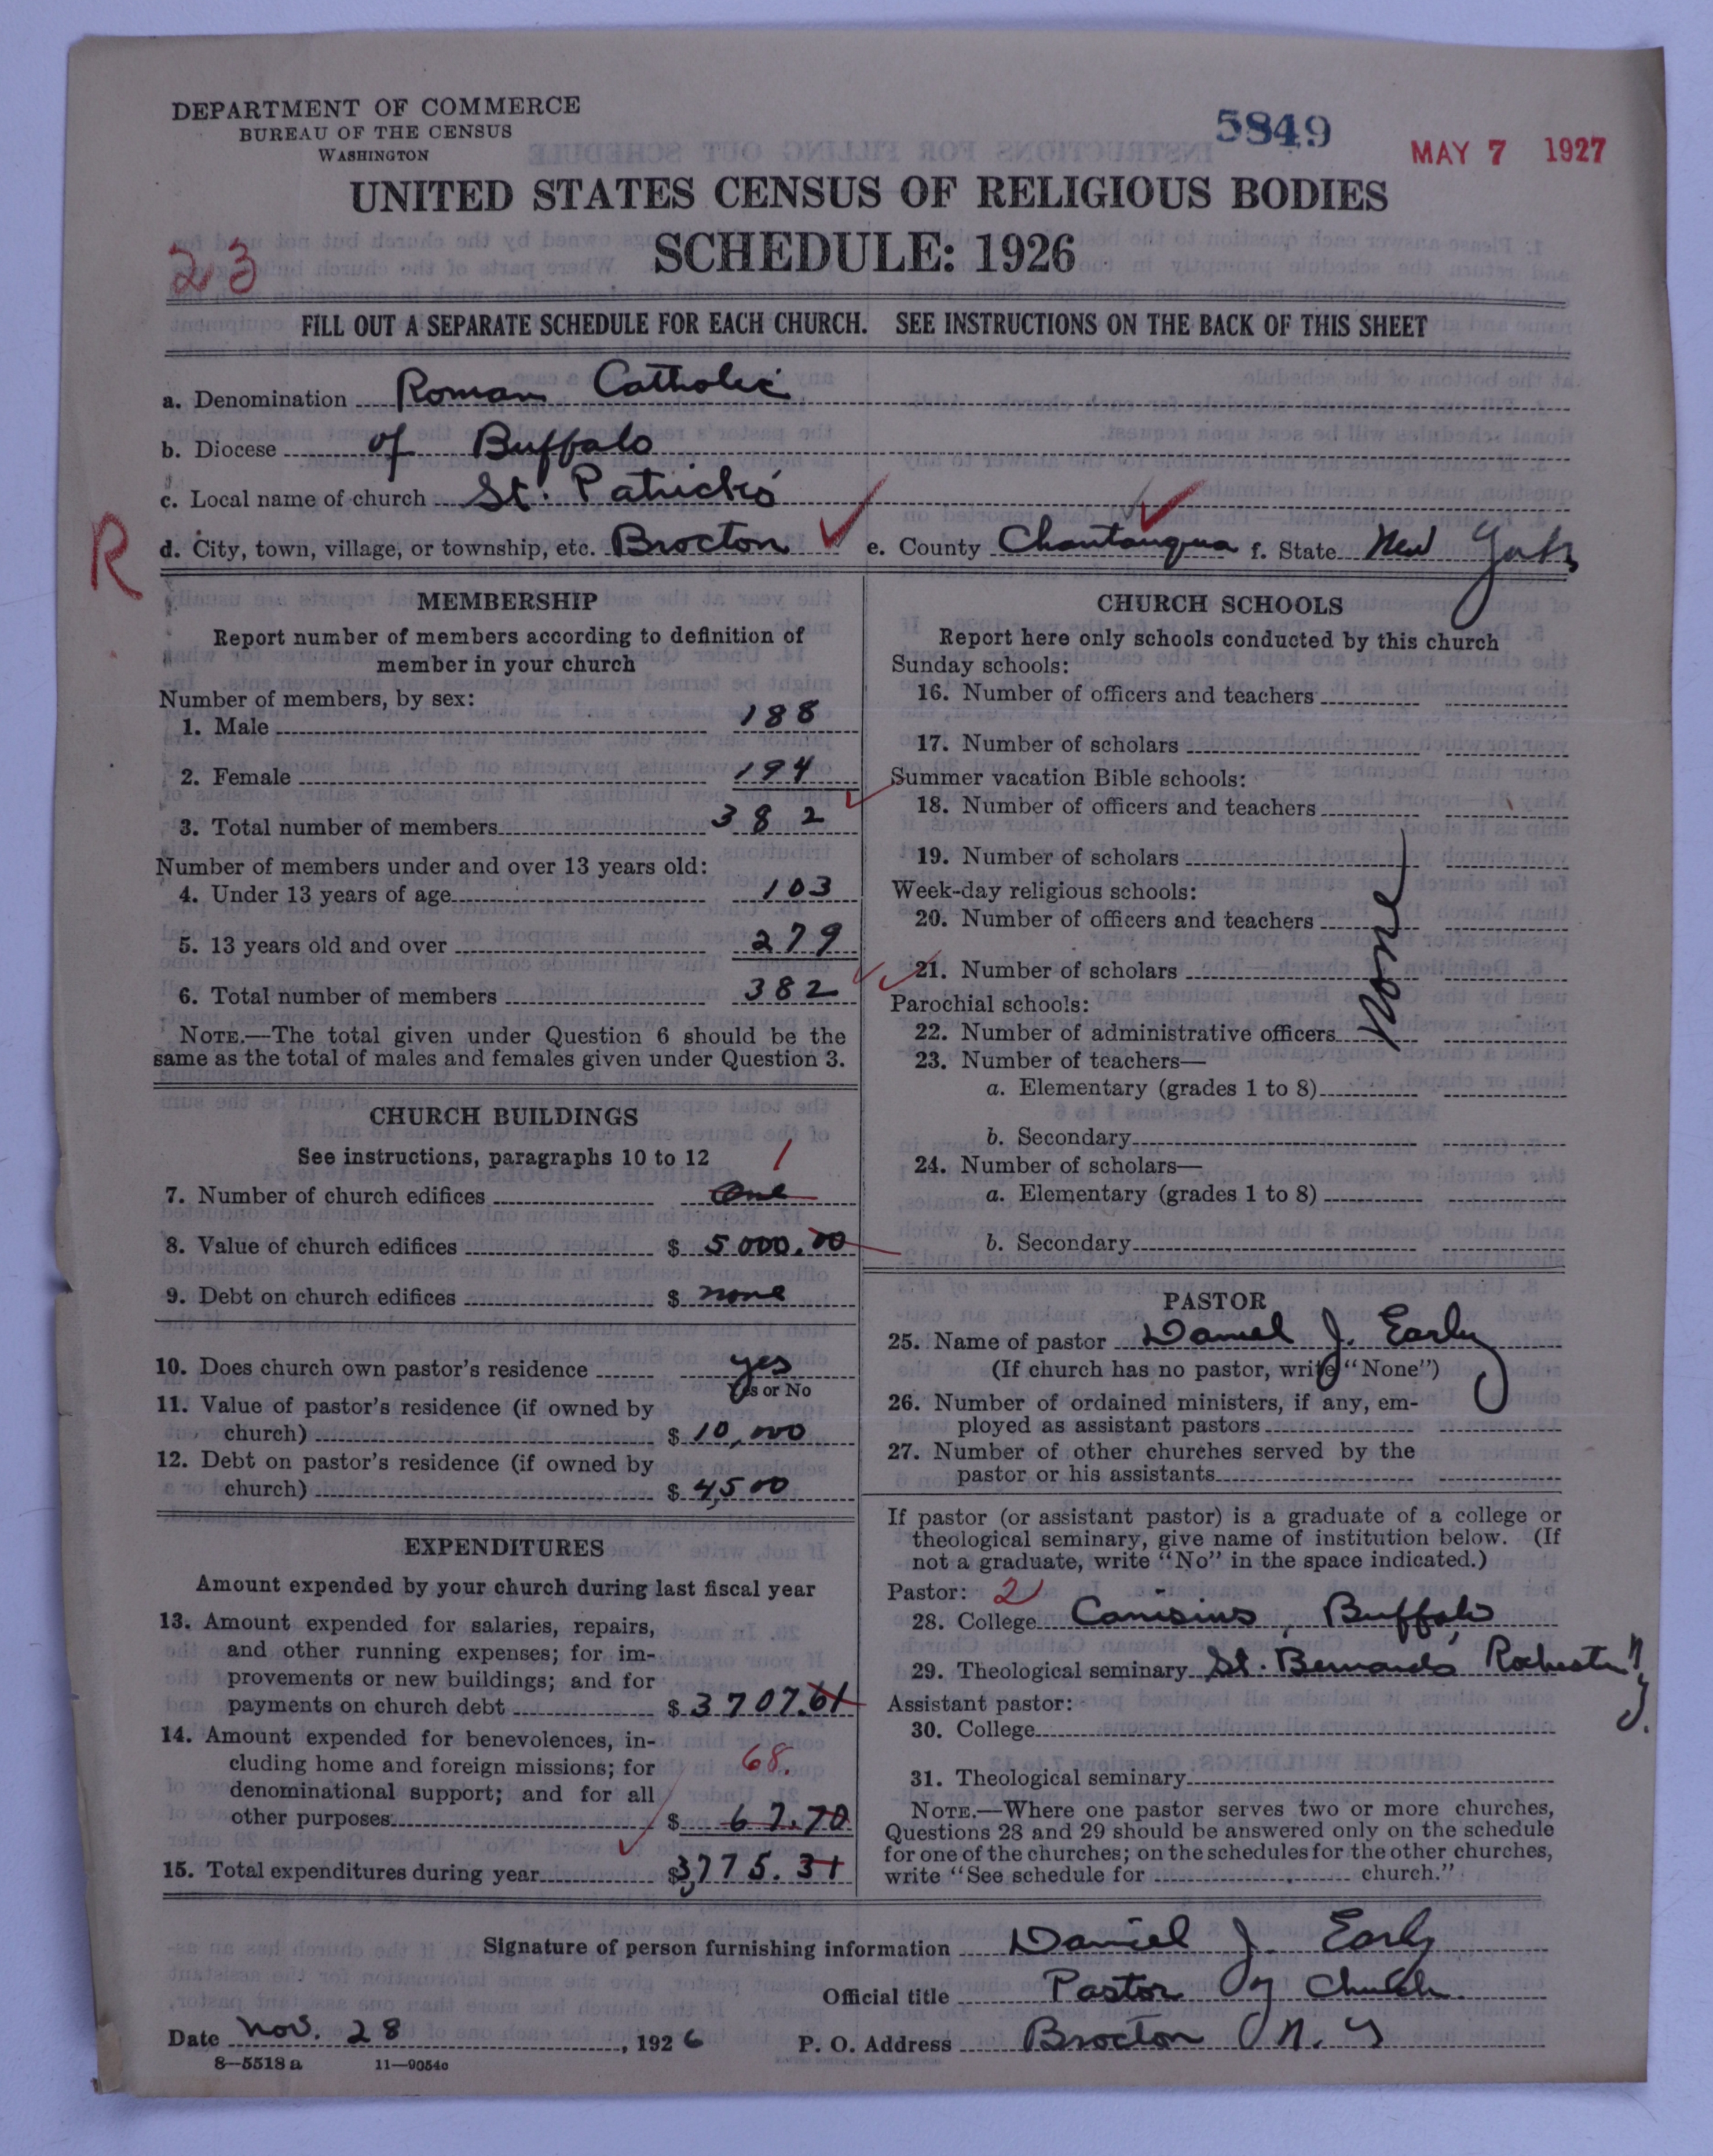 DEPARTMENT OF COMMERCE
BUREAU OF THE CENSUS
WASHINGTON
5849
MAY 7 1927
UNITED STATES CENSUS OF RELIGIOUS BODIES
SCHEDULE: 1926
23
FILL OUT A SEPARATE SCHEDULE FOR EACH CHURCH. SEE INSTRUCTIONS ON THE BACK OF THIS SHEET
a. Denomination Roman Catholic
b. Diocese of Buffalo
c. Local name of church St. Patrick's
R
d. City, town, village, or township, etc. Brocton e. County Chautauqua f. State New York
MEMBERSHIP
Report number of members according to definition of
member in your church
Number of members, by sex:
1. Male 188
2. Female 194
3. Total number of members 382
Number of members under and over 13 years old:
4. Under 13 years of age 103
5. 13 years old and over 279
6. Total number of members 382
NOTE.—The total given under Question 6 should be the
same as the total of males and females given under Question 3.
CHURCH BUILDINGS
See instructions, paragraphs 10 to 12
1
7. Number of church edifices One
8. Value of church edifices $ 5000.00
9. Debt on church edifices $ none
10. Does church own pastor's residence yes
Yes or No
11. Value of pastor's residence (if owned by
church) $ 10,000
12. Debt on pastor's residence (if owned by
church) $ 4,500
EXPENDITURES
Amount expended by your church during last fiscal year
13. Amount expended for salaries, repairs,
and other running expenses; for im-
provements or new buildings; and for
payments on church debt $ 3707.61
14. Amount expended for benevolences, in-
cluding home and foreign missions; for 68.
denominational support; and for all
other purposes $ 67.70
15. Total expenditures during year $3,775.31
CHURCH SCHOOLS
Report here only schools conducted by this church
Sunday schools:
16. Number of officers and teachers
17. Number of scholars
Summer vacation Bible schools:
18. Number of officers and teachers
19. Number of scholars
Week-day religious schools:
20. Number of officers and teachers
21. Number of scholars
None
Parochial schools:
22. Number of administrative officers
23. Number of teachers—
a. Elementary (grades 1 to 8)
b. Secondary
24. Number of scholars—
a. Elementary (grades 1 to 8)
b. Secondary
PASTOR
25. Name of pastor Daniel J. Early
(If church has no pastor, write "None")
26. Number of ordained ministers, if any, em-
ployed as assistant pastors
27. Number of other churches served by the
pastor or his assistants
If pastor (or assistant pastor) is a graduate of a college or
theological seminary, give name of institution below. (If
not a graduate, write "No" in the space indicated.)
Pastor: 2
28. College Canisius, Buffalo
29. Theological seminary St. Bernard's, Rochester N.Y.
Assistant pastor:
30. College
31. Theological seminary
NOTE.—Where one pastor serves two or more churches,
Questions 28 and 29 should be answered only on the schedule
for one of the churches; on the schedules for the other churches,
write "See schedule for church."
Signature of person furnishing information Daniel J. Early
Official title Pastor of Church
Date Nov. 28, 1926 P. O. Address Brocton N. Y
8—5518 a 11—9054c